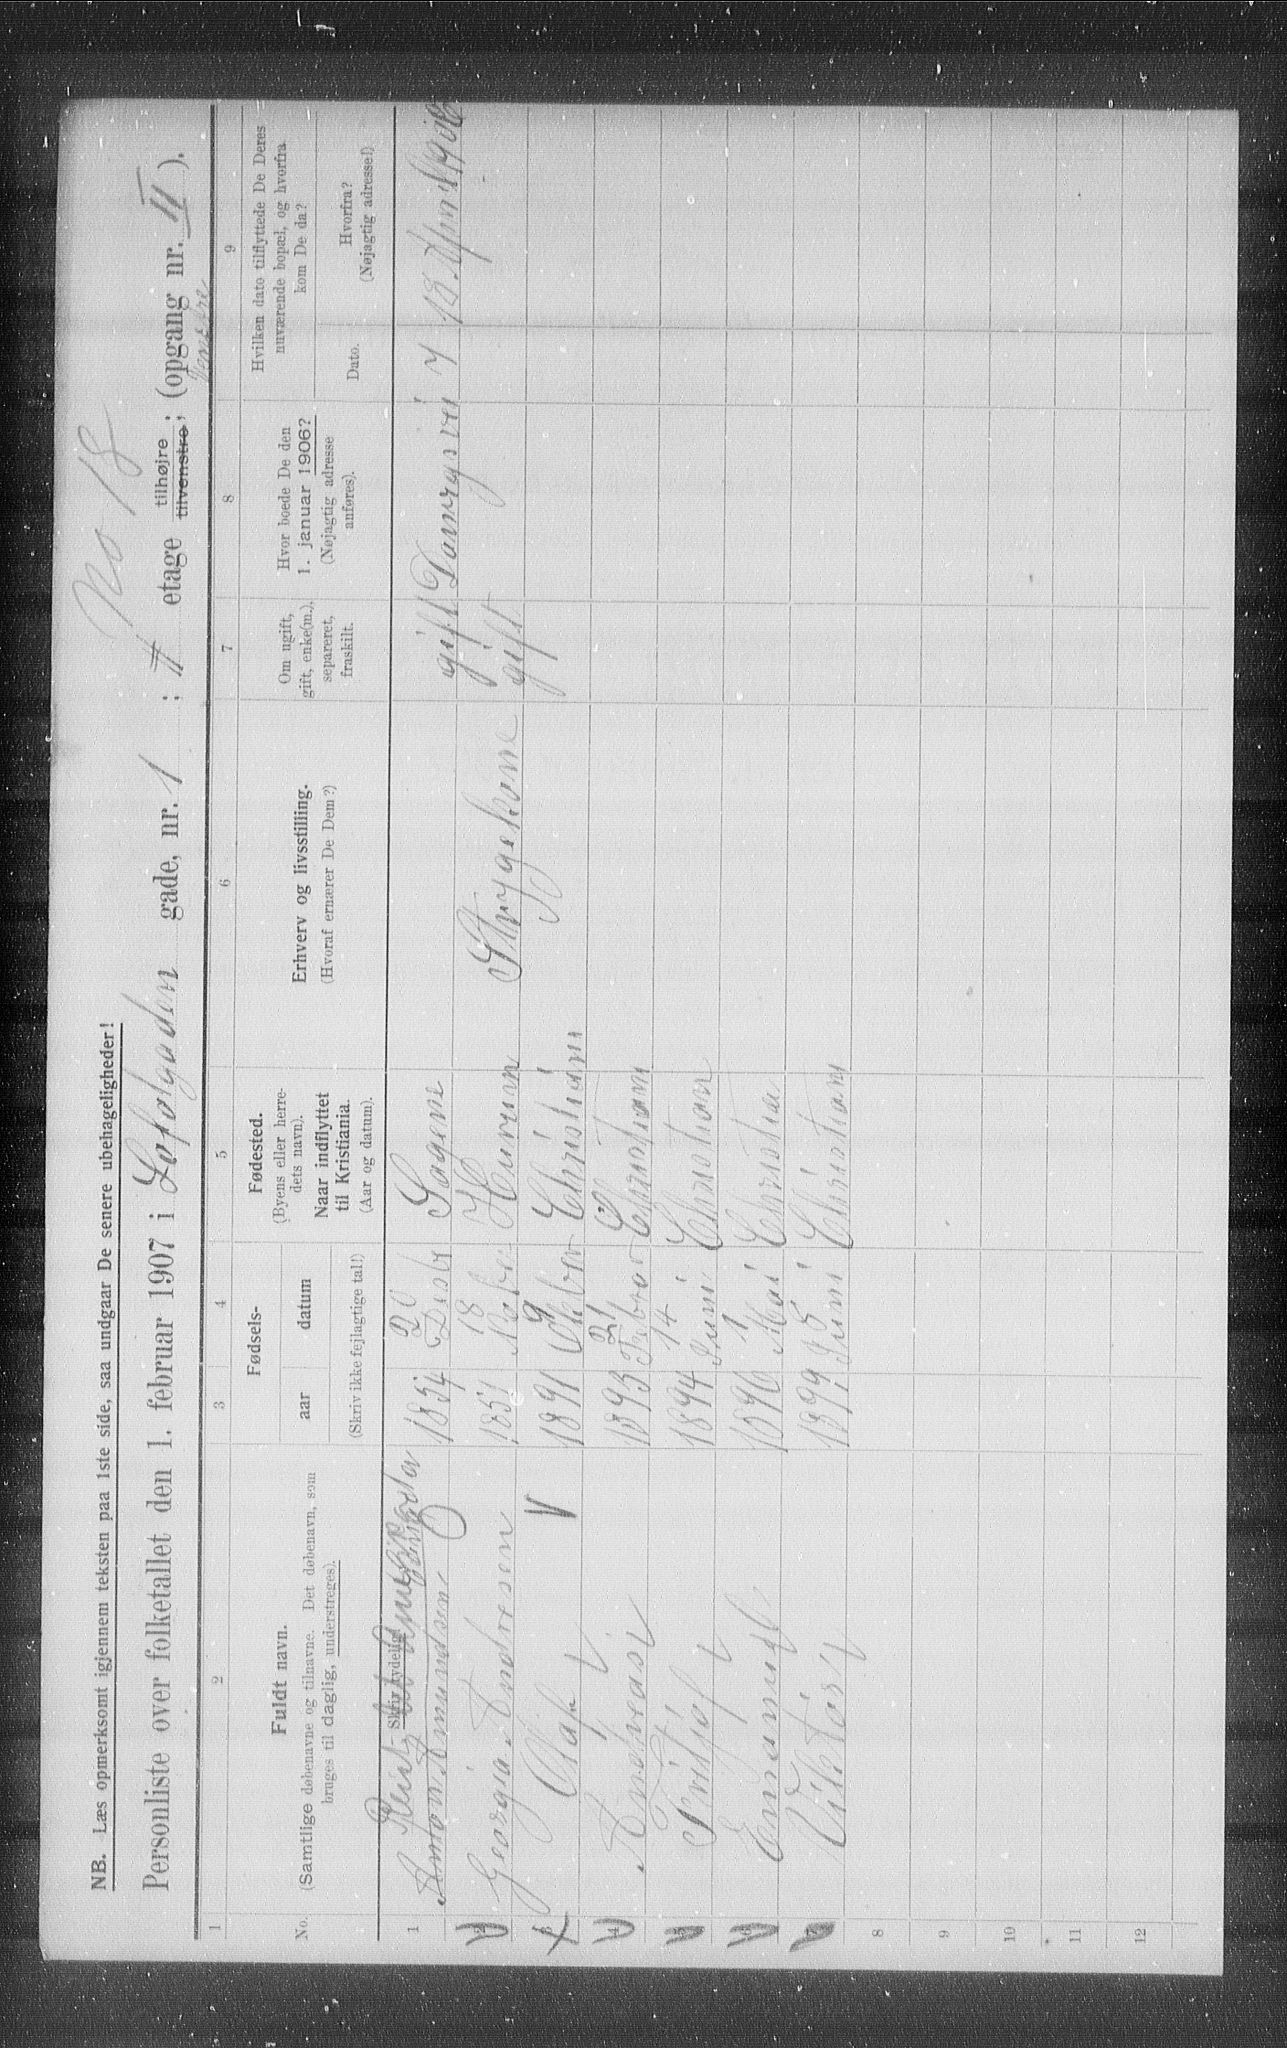 No 18
NB. Læs opmerksomt igjennem teksten paa 1ste side, saa undgaar De senere ubehageligheder!
Personliste over folketallet den 1. februar 1907 i Lofotgaden gade, nr. 1 ; II etage tilhøjre tilvenstre; (opgang nr. II ).
Venstre
1 2 3 4 5 6 7 8 9
No.
Fuldt navn.
(Samtlige døbenavne og tilnavne. Det døbenavn, som
bruges til daglig, understreges).
Skriv tydelig!
Fødsels-
aar datum
(Skriv ikke fejlagtige tal!)
Fødested.
(Byens eller herre-
dets navn).
Naar indflyttet
til Kristiania.
(Aar og datum).
Erhverv og livsstilling.
(Hvoraf ernærer De Dem?)
Om ugift,
gift, enke(m.),
separeret,
fraskilt.
Hvor boede De den
1. januar 1906?
(Nøjagtig adresse
anføres).
Hvilken dato tilflyttede De Deres
nuværende bopæl, og hvorfra
kom De da?
Dato.
Hvorfra?
(Nøjagtig adresse!)
1 Anton Amundsen 1854 20 Desbr Sagene gift 7 18. April 1906
2 Georgia Andresen 1851 18 Hurum Strygekone gift
3 Olaf 1891 9 Oktbor Christiani
4 Andreas 1893 21 Febror Christiani
5 Fritjof 1894 14 Juni Christian
6 Emanuel 1896 1 Mai Christia
7 Viktor 1899 5 Juni Christiani
8
9
10
11
12